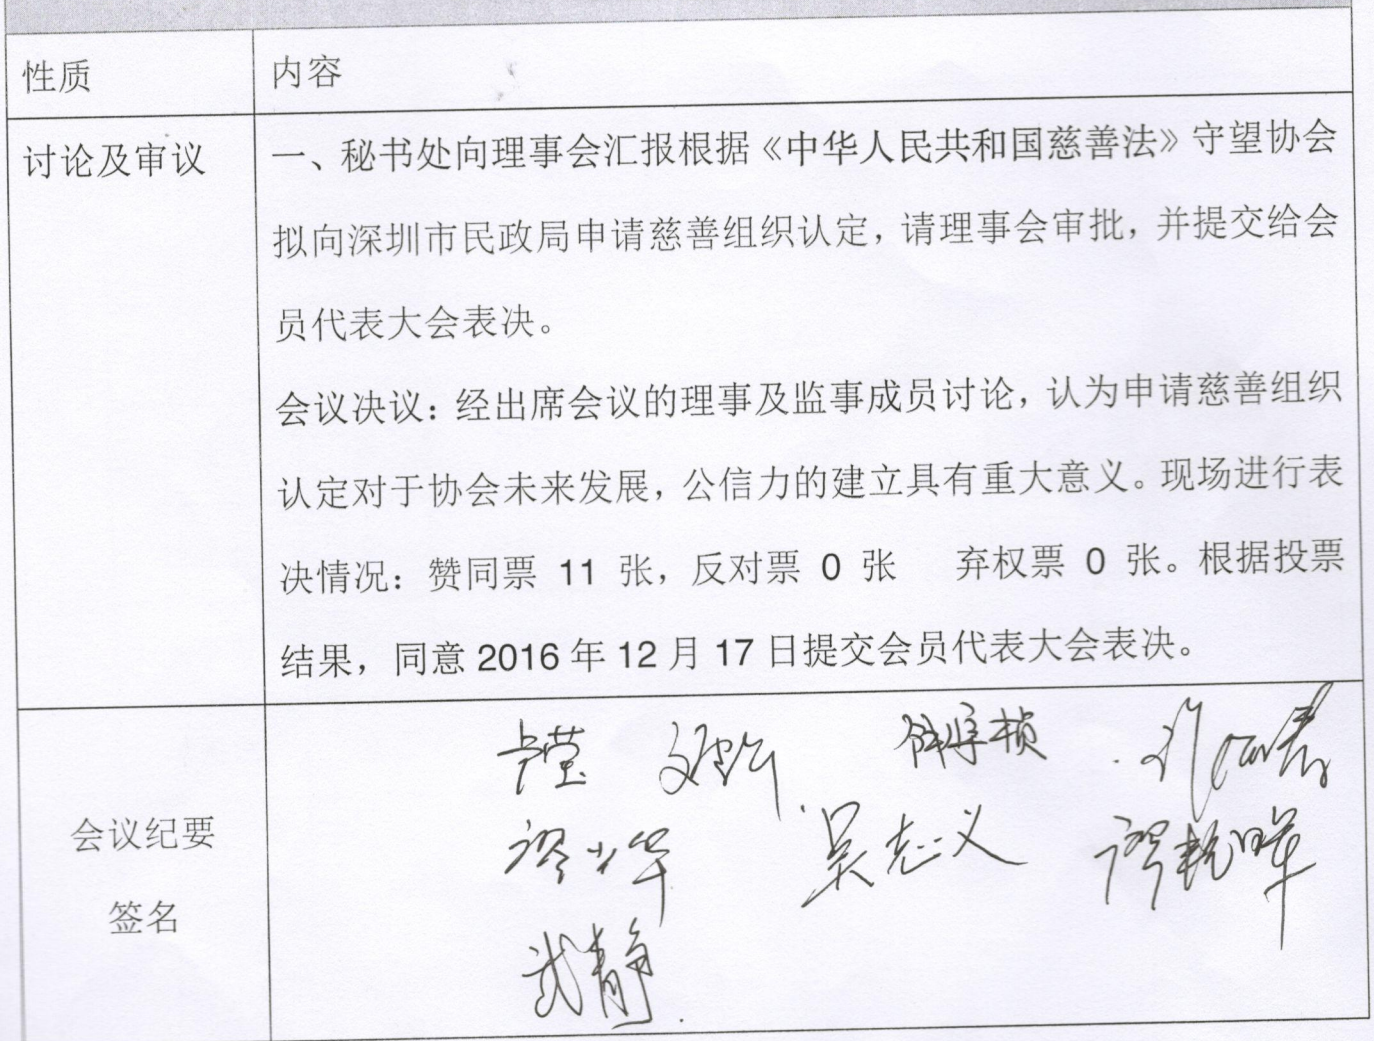 性质
内容
讨论及审议
一、秘书处向理事会汇报根据《中华人民共和国慈善法》守望协会
拟向深圳市民政局申请慈善组织认定，请理事会审批，并提交给会
员代表大会表决。
会议决议：经出席会议的理事及监事成员讨论，认为申请慈善组织
认定对于协会未来发展，公信力的建立具有重大意义。现场进行表
决情况：赞同票 11 张，反对票 0 张 弃权票 0 张。根据投票
结果，同意 2016 年 12 月 17 日提交会员代表大会表决。
会议纪要
签名
卢莹
廖少华 吴志义 谬艳晖
武静